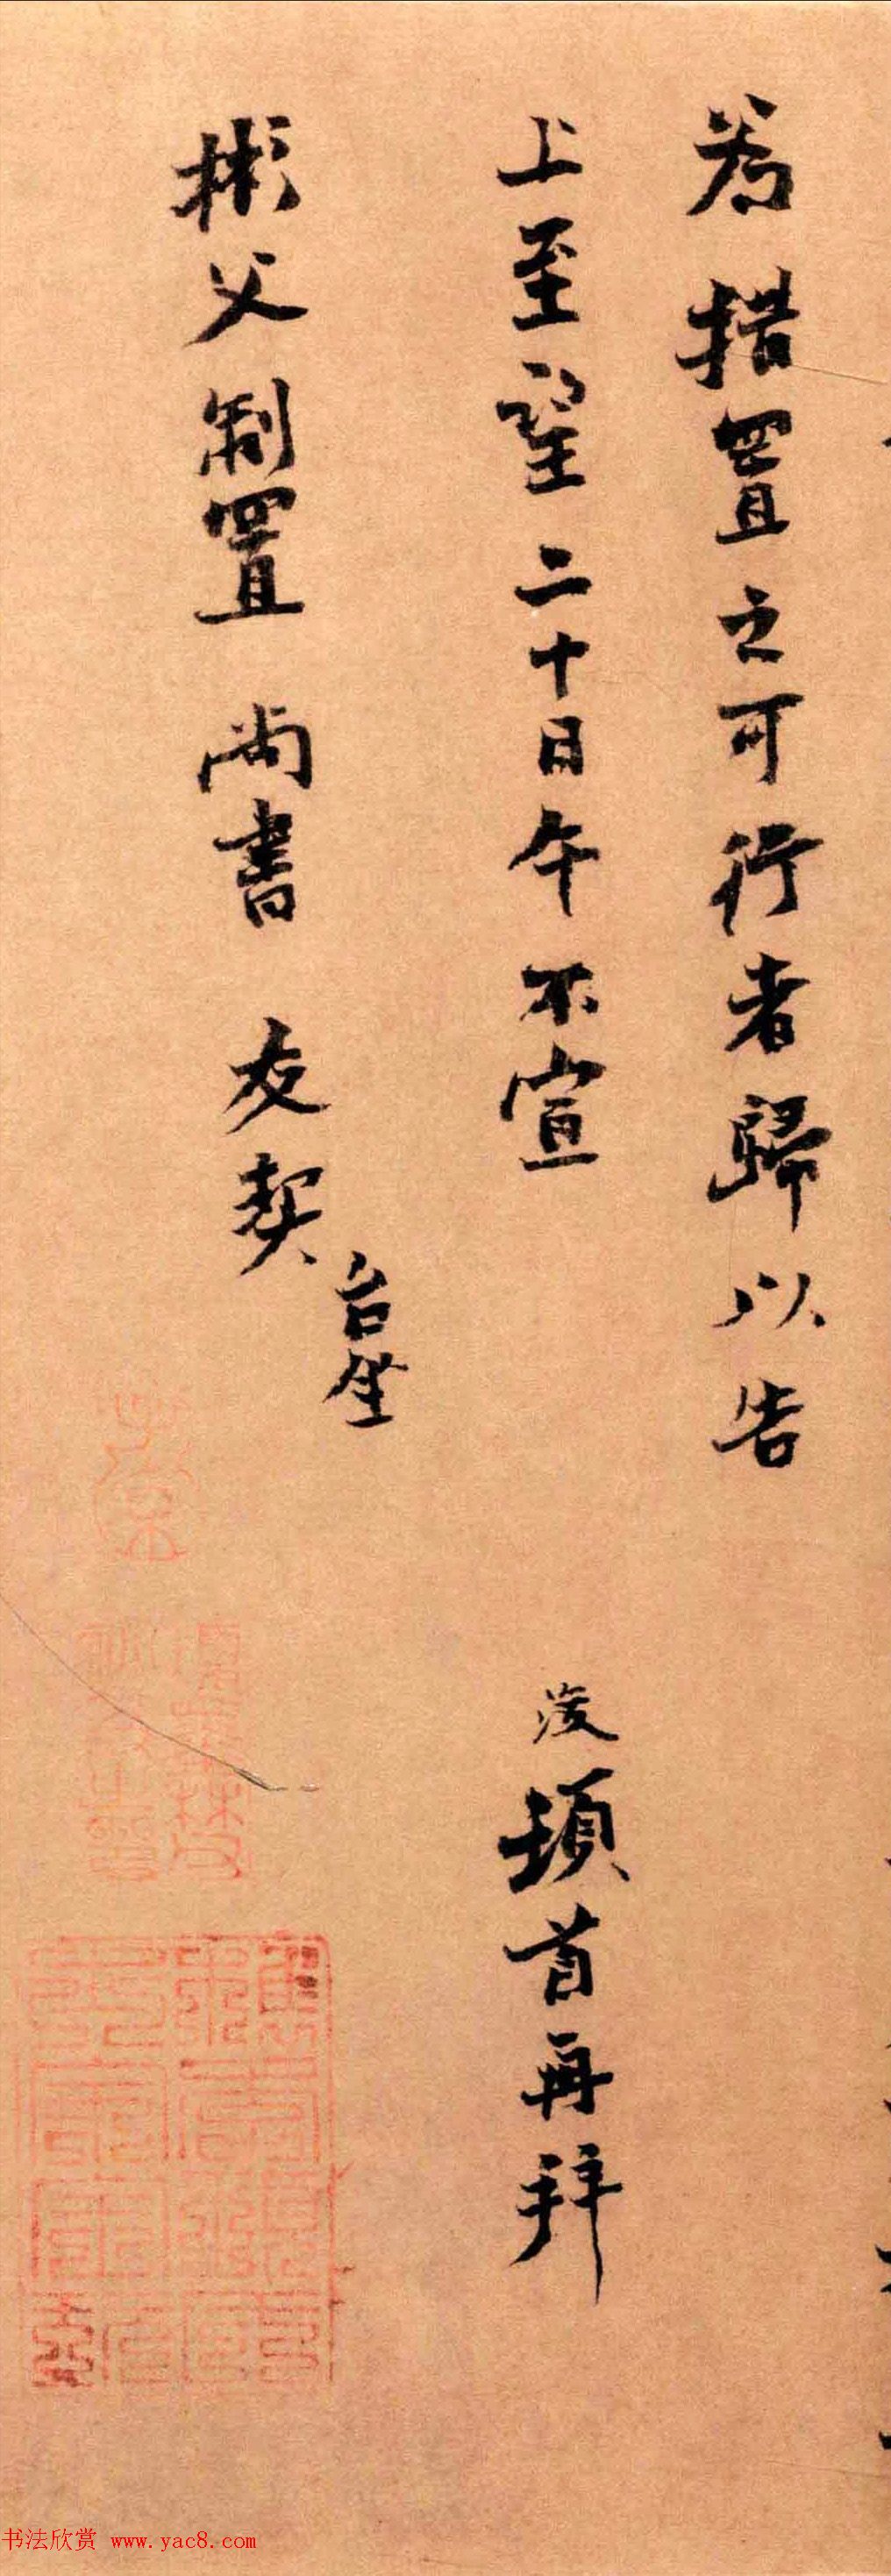 若措置之可行者歸以告
上至望二十日午不宣
浚頓首再拜
彬父制置 尚書 友契
台坐
书法欣赏 www.yac8.com